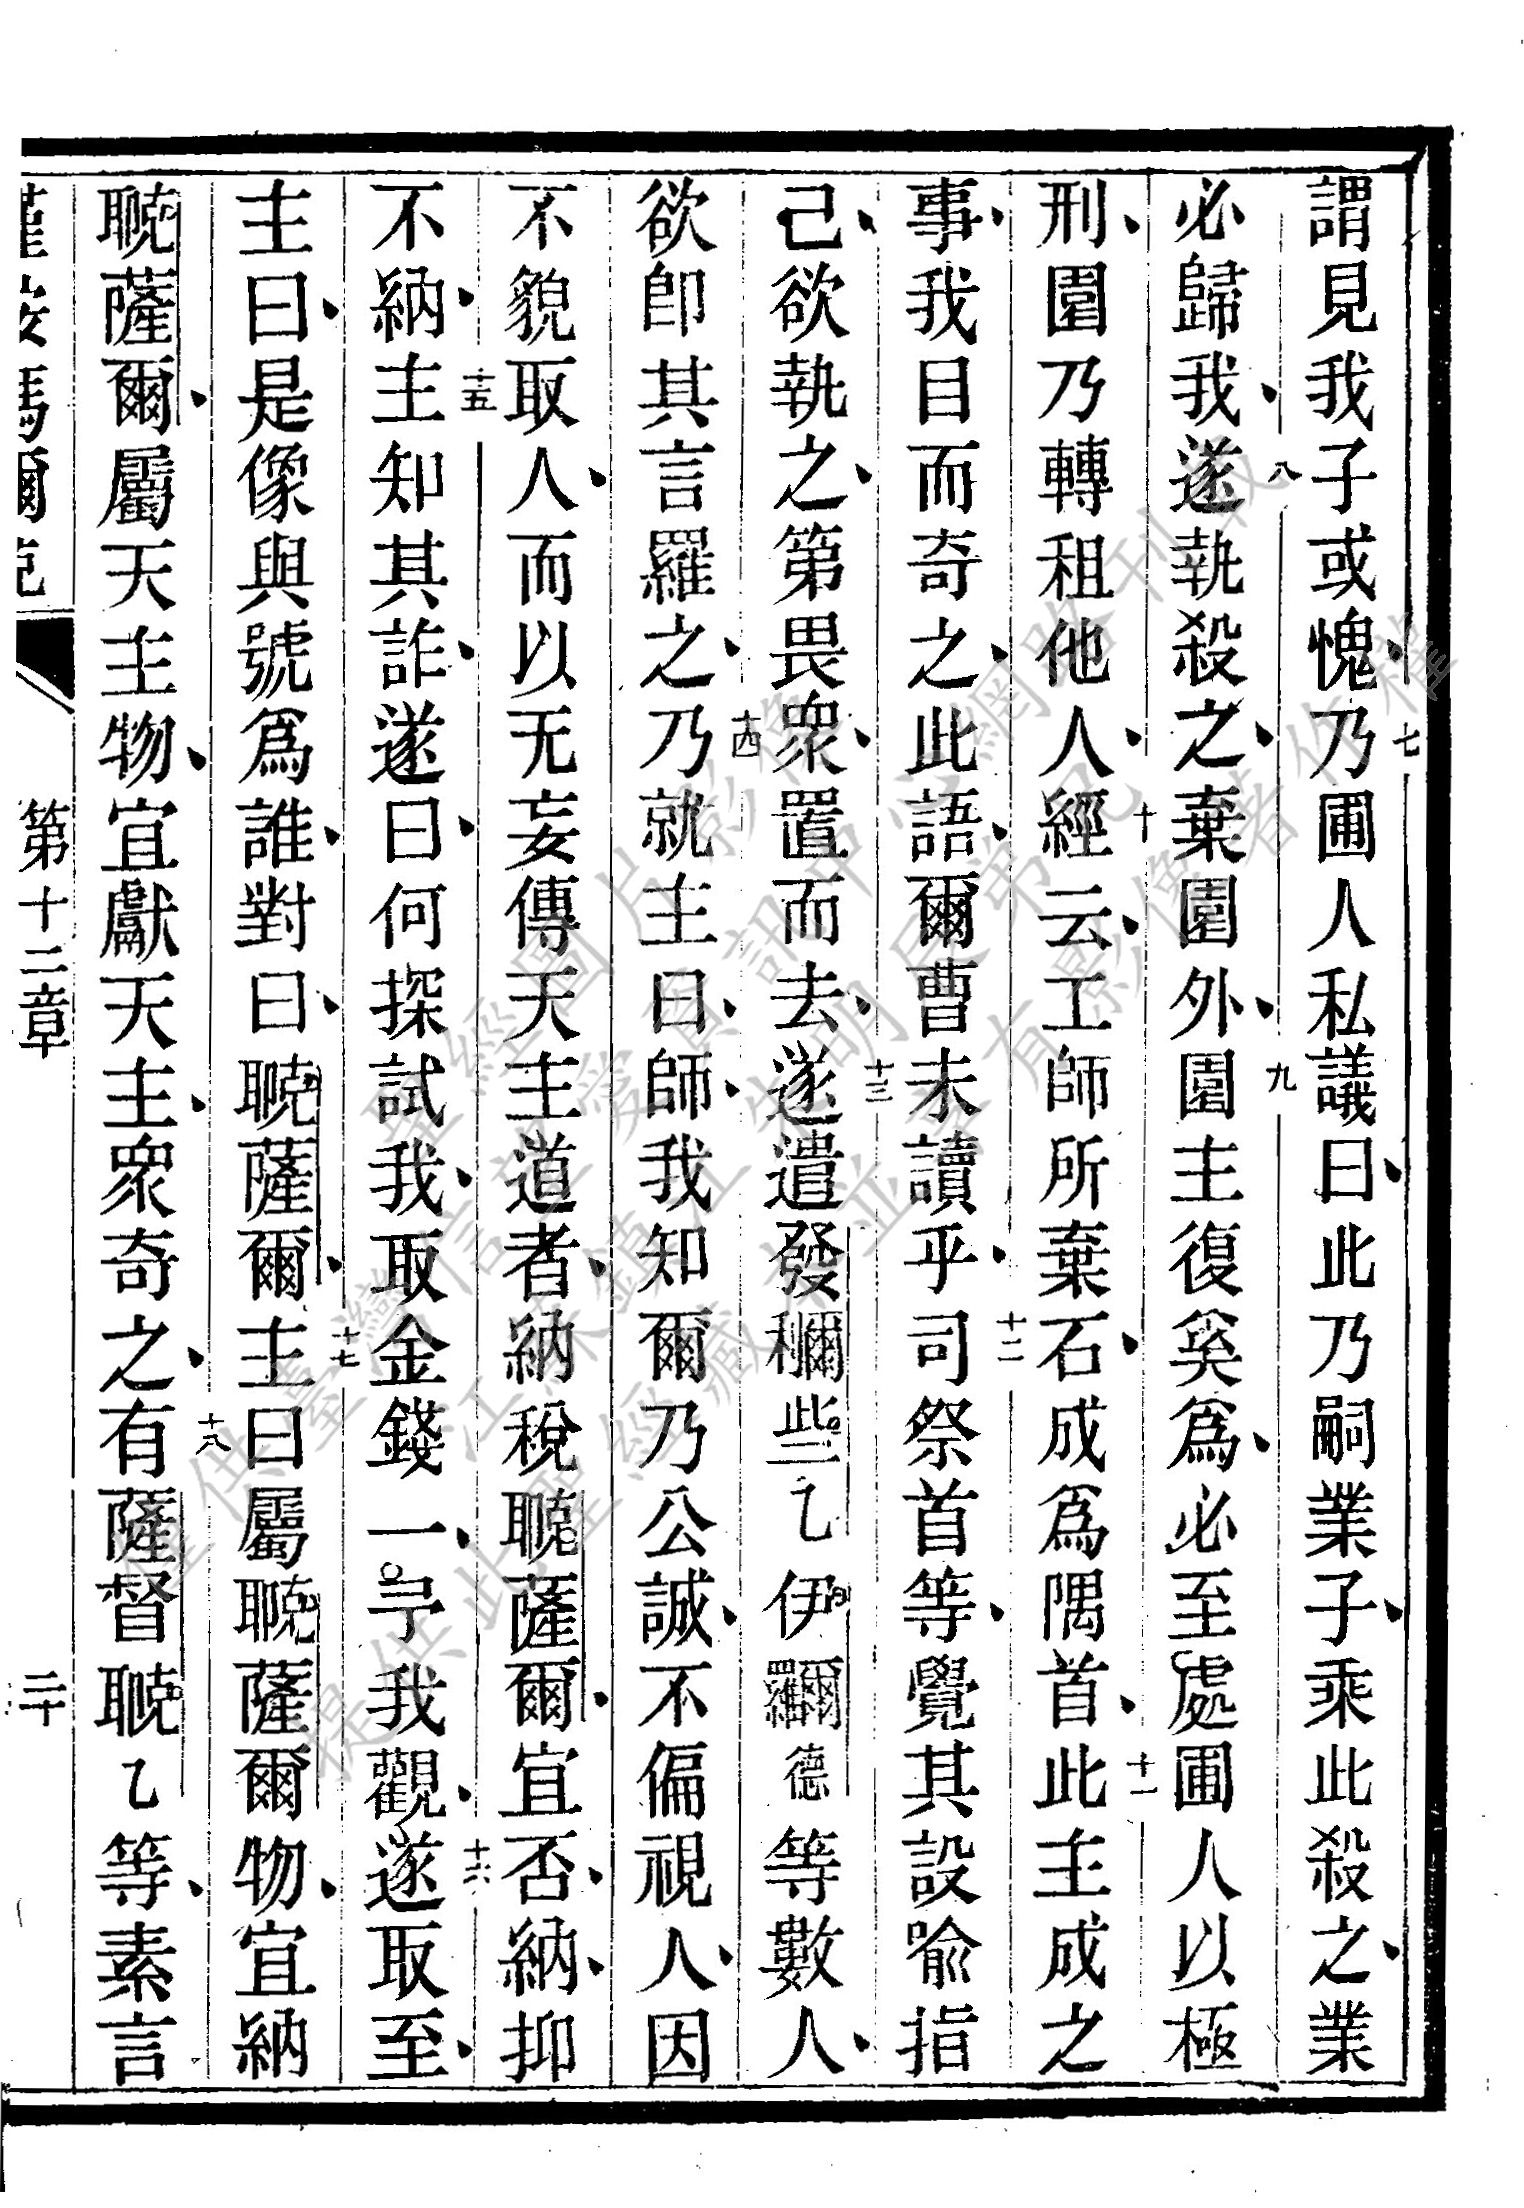 謂見我子或愧、七乃圃人私議曰、此乃嗣業子、乘此殺之、業
必歸我、八遂執殺之、棄園外、九園主復奚爲、必至處圃人以極
刑、園乃轉租他人、十經云、工師所棄石、成爲隅首、十一此主成之
事、我目而奇之、此語、爾曹未讀乎、十二司祭首等、覺其設喻指
己、欲執之、第畏衆、置而去、十三遂遣發些乙伊德等數人、
欲卽其言羅之、十四乃就主曰、師、我知爾乃公誠、不偏視人、因
不貌取人、而以无妄傳天主道者、納稅薩爾、宜否、納、抑
不納、十五主知其詐、遂曰、何探試我、取金錢一、予我觀、十六遂取至、
主曰、是像與號爲誰、對曰、薩爾、十七主曰、屬薩爾物、宜納
薩爾、屬天主物、宜獻天主、衆奇之、十八有薩督乙等、素言
第十二章 二十